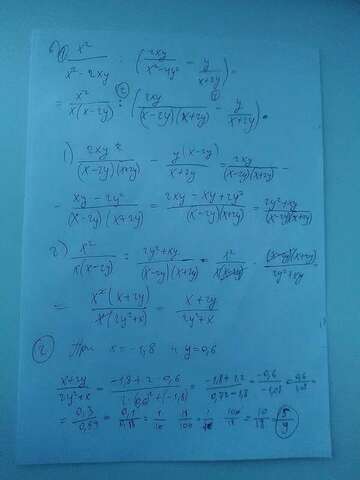 б) ① x² / (x² - 2xy) : (2xy / (x² - 4y²) - y / (x+2y)) =
= x² / (x(x-2y)) ②: (2xy / ((x-2y)(x+2y)) ①- y / (x+2y)) =
1) 2xy / ((x-2y)(x+2y)) - y(x-2y) / (x+2y) = 2xy / ((x-2y)(x+2y)) -
- (xy - 2y²) / ((x-2y)(x+2y)) = (2xy - xy + 2y²) / ((x-2y)(x+2y)) = (2y² + xy) / ((x-2y)(x+2y))
2) x² / (x(x-2y)) : (2y² + xy) / ((x-2y)(x+2y)) = x² / (x(x-2y)) · ((x-2y)(x+2y)) / (2y² + xy)
= x²(x+2y) / (x(2y²+x)) = (x+2y) / (2y²+x)
② При x = -1,8 и y = 0,6
(x+2y) / (2y²+x) = (-1,8 + 2·0,6) / (2·0,6² + (-1,8)) = (-1,8 + 1,2) / (0,72 - 1,8) = -0,6 / -1,08 = 0,6 / 1,08 =
= 0,3 / 0,54 = 0,1 / 0,18 = 1/10 : 18/100 = 1/10 · 100/18 = 10/18 = 5/9